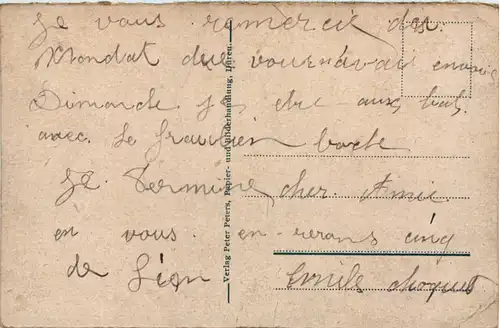 Je vous remercie des
Mandat que vous navais envoie
Dimande je etu aux bal
avec le fraulien boche
Je Termine cher Amie
en vous en-rerans cinq
de Léon Emile choquet
Verlag Peter Peters, Papier- und Bilderhandlung, Düren.